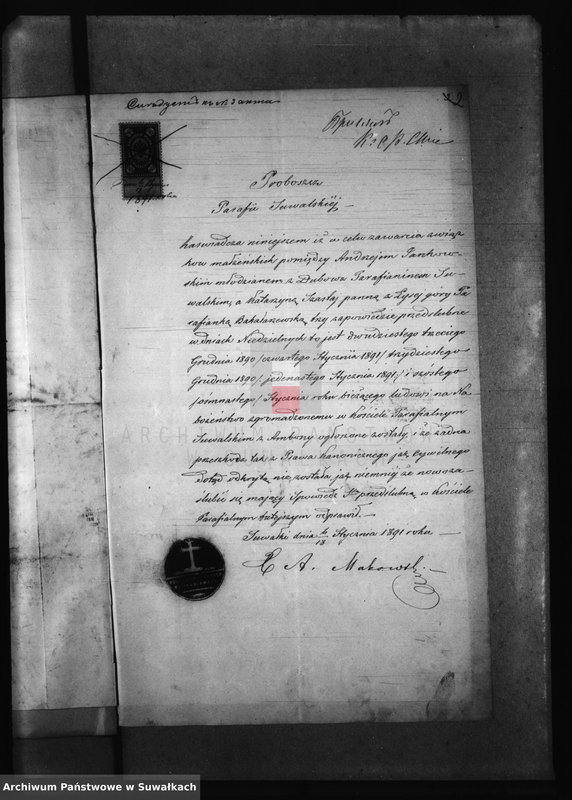 Proboszcz
Parafii Suwalskiéj
Zaświadcza niniejszem iż w celu zawarcia związ
ków małżeńskich pomiędzy Andrzejem Jankow-
skim młodzianem z Dubowa Parafianinem Su-
walskim, a Katarzyną Szaslaj panną z Łysej góry Pa
rafianką Bakałarzewską trzy zapowiedzie przedślubne
w dniach Niedzielnych to jest dwudziestego trzeciego
Grudnia 1890/czwartego Stycznia 1891/trzydziestego
Grudnia 1890/jedenastego Stycznia 1891/i szóstego
/ośmnastego/Stycznia roku bieżącego ludowi na Na
bożeństwo zgromadzonemu w kościele Parafialnym
Suwalskim z Ambony ogłoszone zostały, i że żadna
przeszkoda tak z Prawa kanonicznego jak cywilnego
dotąd odkrytą nie została, jak niemniéj że nowoza
ślubić się mający Spowiedź Stą przedślubną w kościele
Parafialnym tutejszym odprawił.
Suwałki dnia 6/18 Stycznia 1891 roku
X A. Makowski
Archiwum Państwowe w Suwałkach